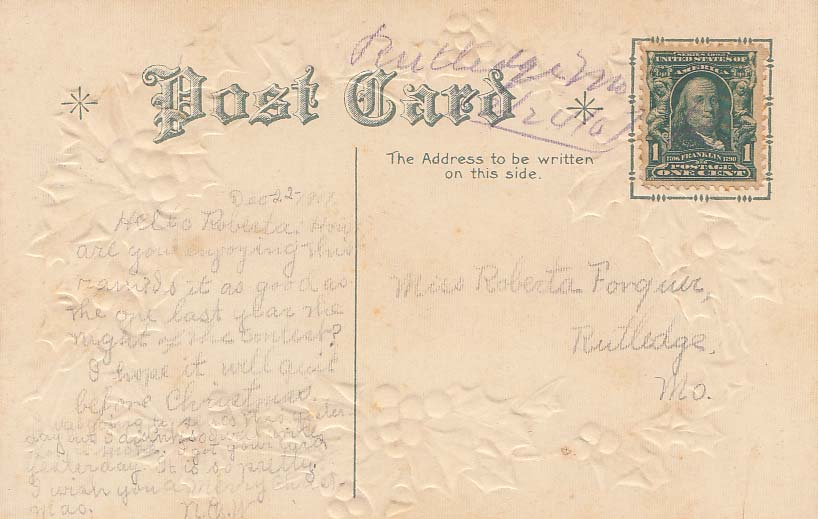 Rutledge, Mo.
Post Card
The Address to be written
on this side.
SERIES 1902
UNITED STATES OF
AMERICA
1 1
1706 FRANKLIN 1790
POSTAGE
ONE CENT
Dec 22
Hello Roberta. How
are you enjoying this
rain? Is it as good as
the one last year the
night of the contest?
I hope it will quit
before Christmas.
day but
yesterday. It is so pretty.
I wish you a Merry Christ-
mas.
Miss Roberta Forquer,
Rutledge,
Mo.